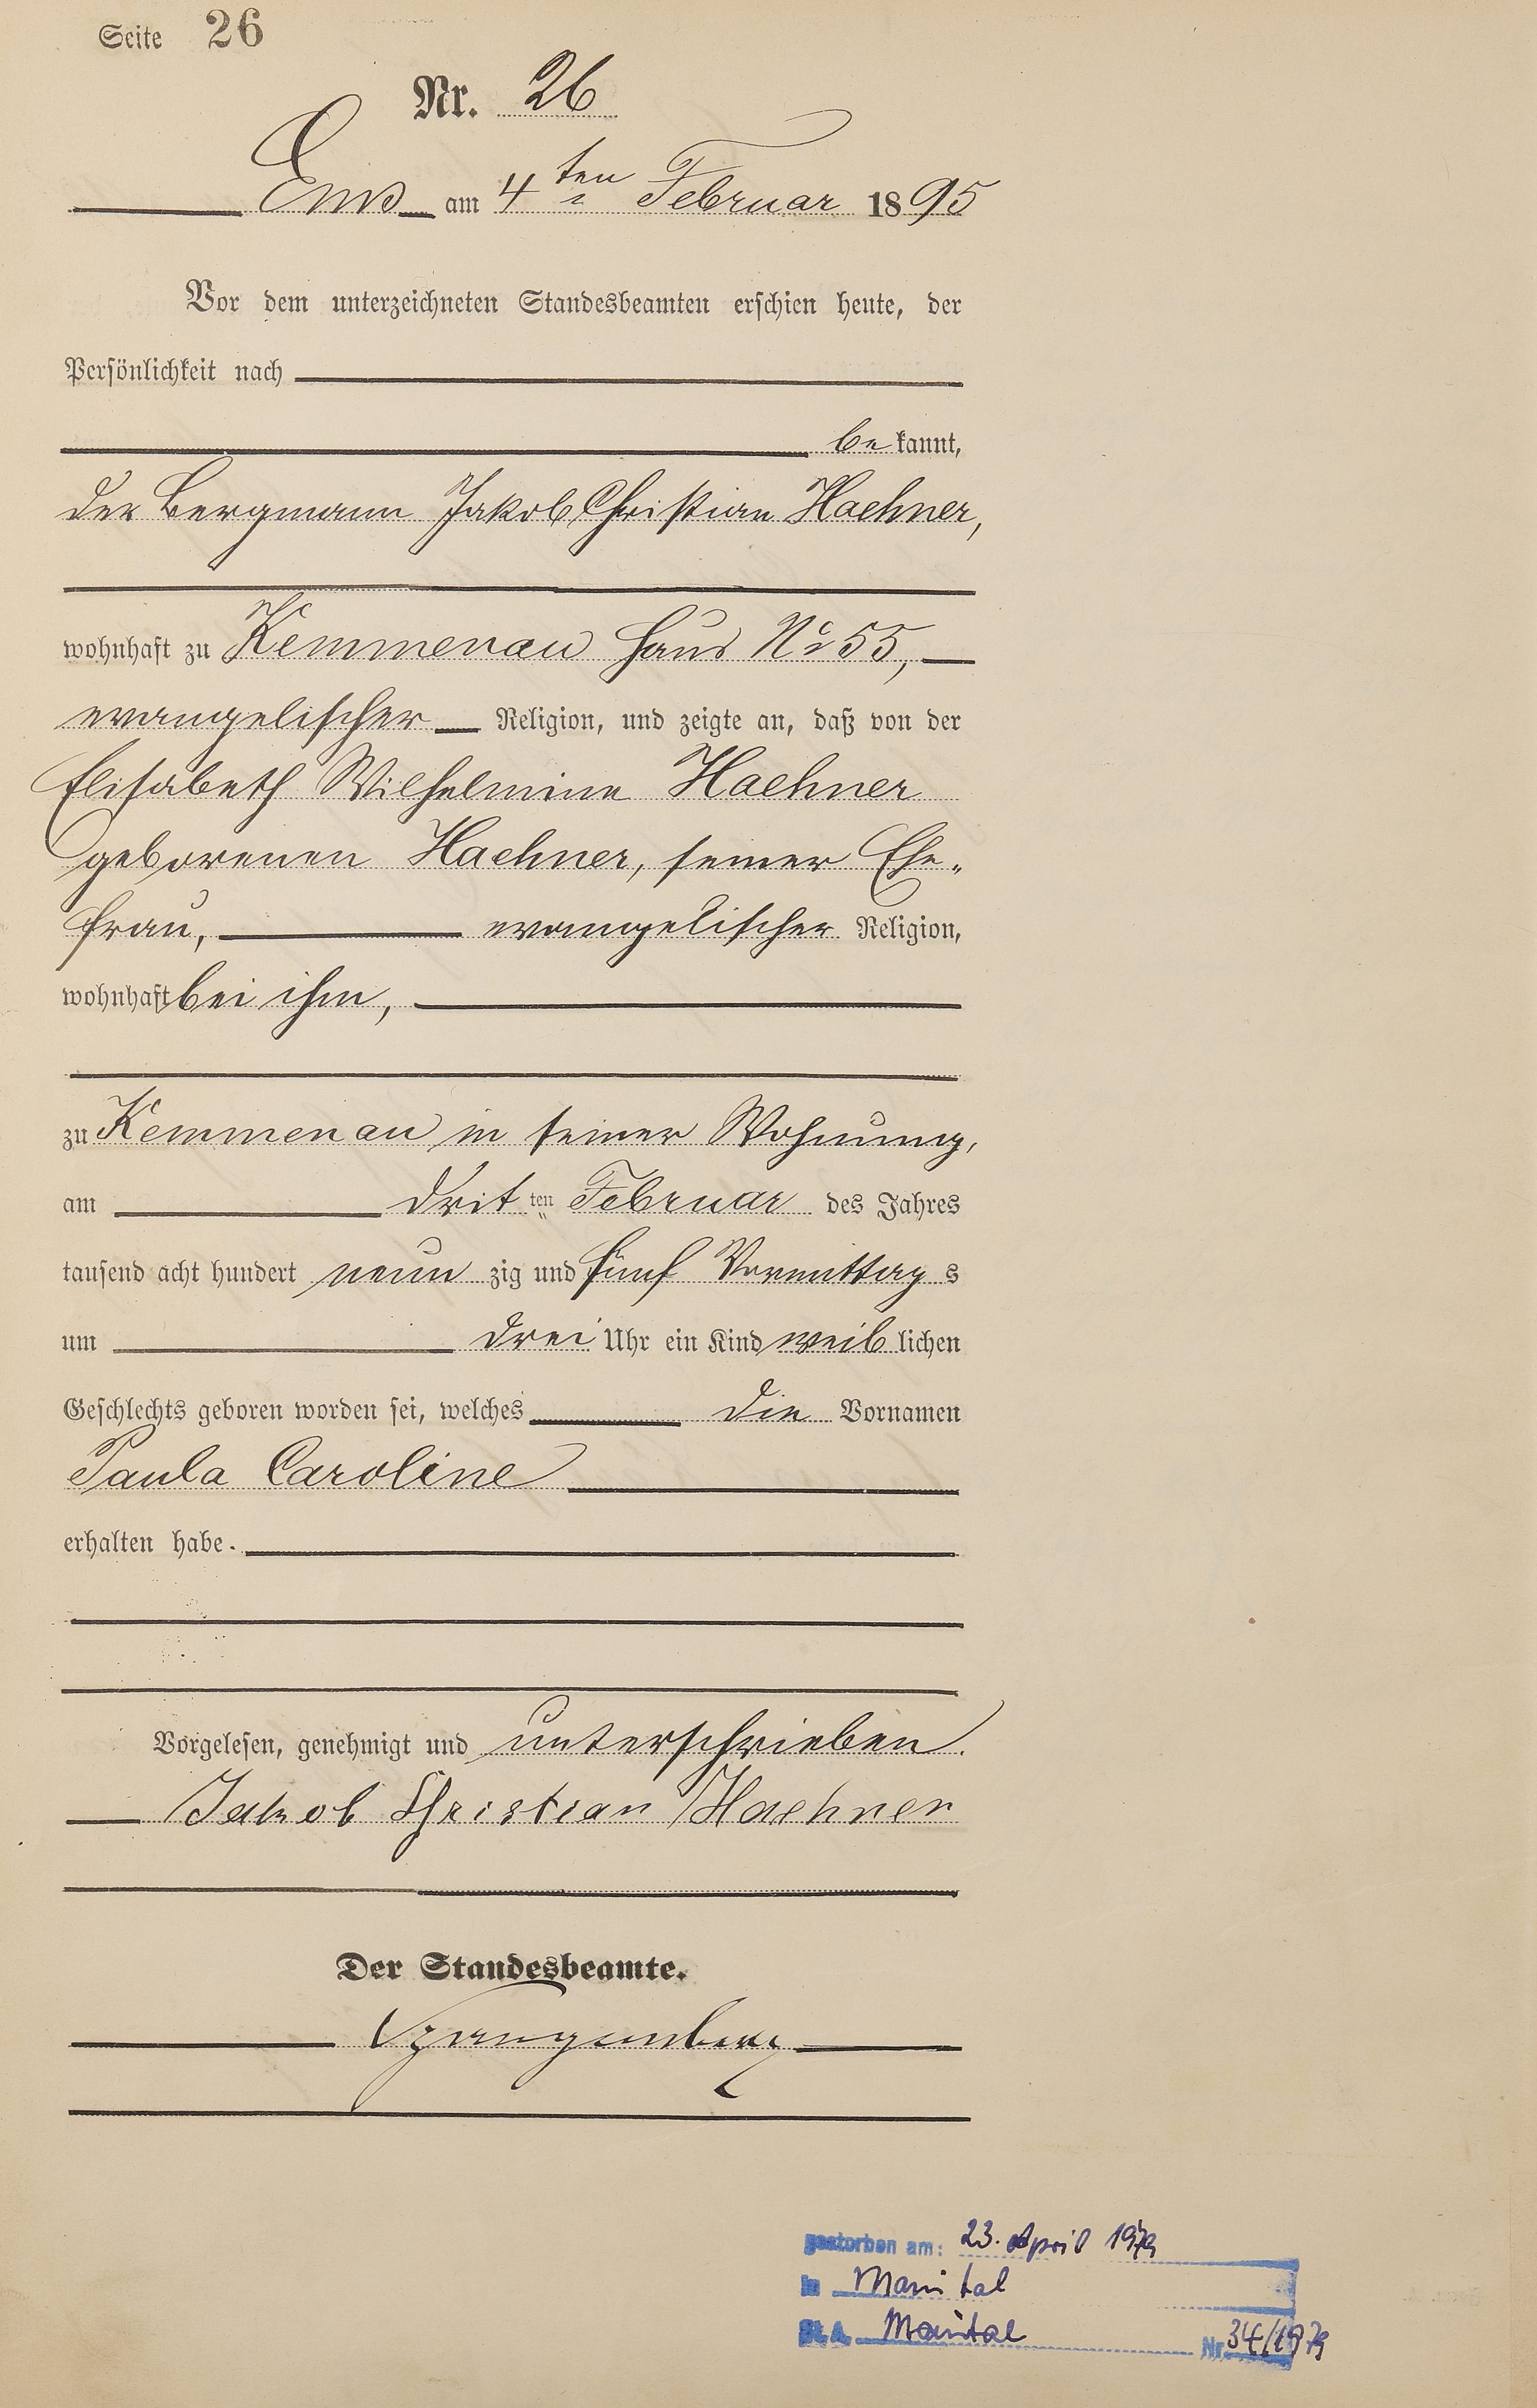 Seite 26
Nr. 26
Ems am 4ten Februar 1895
Vor dem unterzeichneten Standesbeamten erschien heute, der
Persönlichkeit nach
be kannt,
der Bergmann Jakob Christian Haehner,
wohnhaft zu Kemmenau Haus No 55,
evangelischer Religion, und zeigte an, daß von der
Elisabeth Wilhelmine Haehner
geborenen Haehner, seiner Ehe-
frau, evangelischer Religion,
wohnhaft bei ihm,
zu Kemmenau in seiner Wohnung,
am drit ten Februar des Jahres
tausend acht hundert neun zig und fünf Vormittag s
um drei Uhr ein Kind weib lichen
Geschlechts geboren worden sei, welches die Vornamen
Paula Caroline
erhalten habe.
Vorgelesen, genehmigt und unterschrieben.
Jakob Christian Haehner
Der Standesbeamte.
Spangenberg
gestorben am: 23. April 1979
in
St. A. Nr. 34/1979